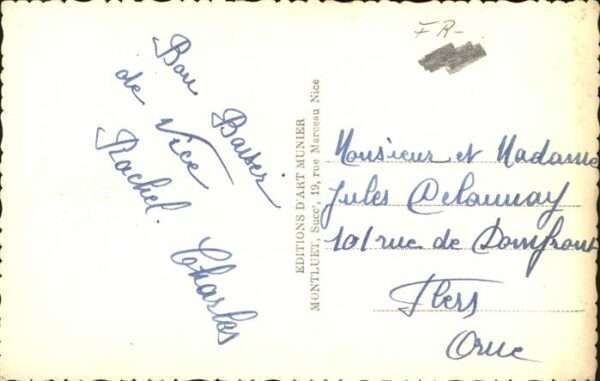 FR-
Bon Baiser
de Nice
Rachel. Charles
EDITIONS D'ART MUNIER
MONTLUET, Succr, 19, rue Marceau Nice
Monsieur et Madame
Jules Delaunay
101 rue de Domfront
Flers
Orne